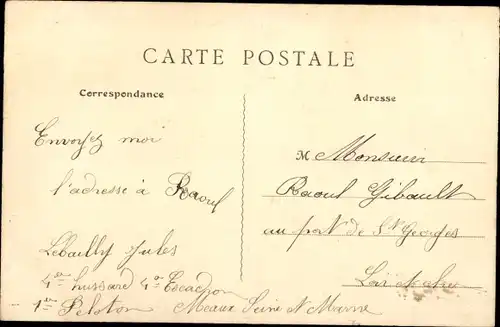 CARTE POSTALE
Correspondance
Adresse
Envoyez moi
l'adresse à Raoul
Lebailly Jules
4ème hussard 4e Escadron
1er Peloton Meaux Seine et Marne
M Monsieur
Raoul Gibault
au port de St Georges